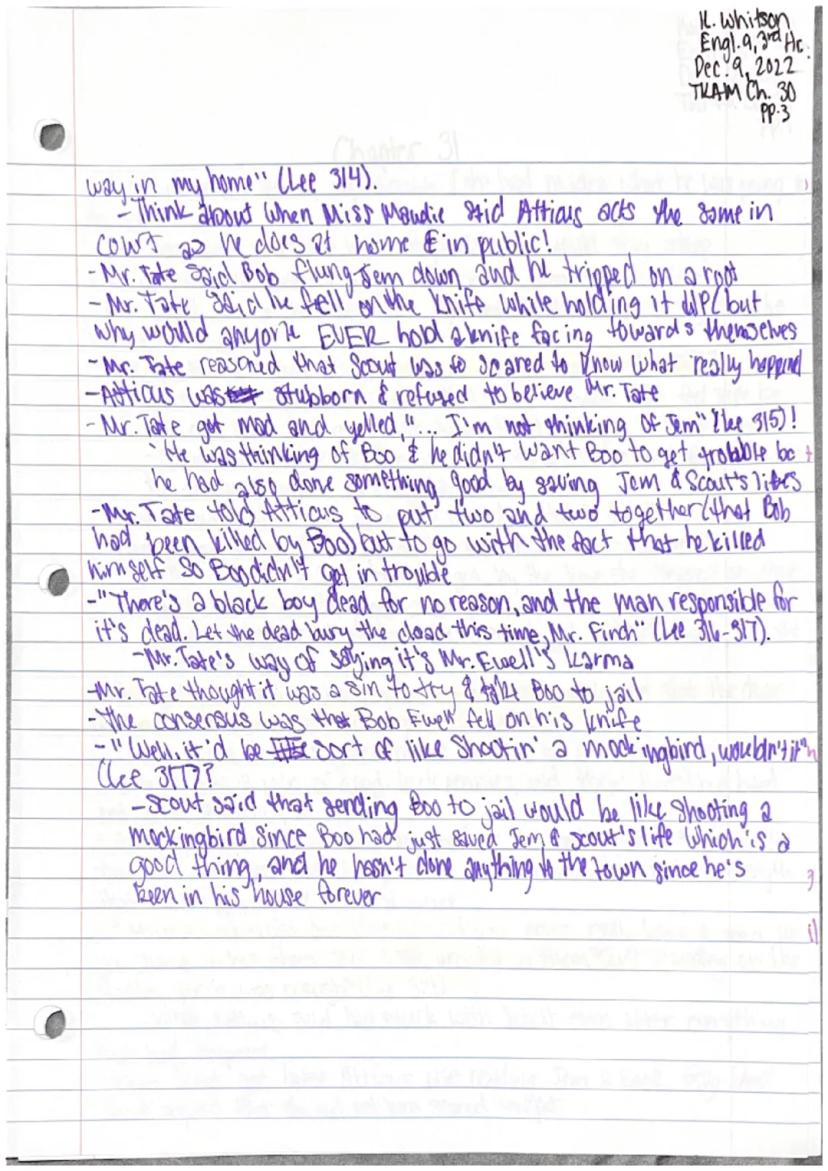 K. Whitson
Engl. 9, 3rd Hr.
Dec. 9, 2022
TKAM Ch. 30
pp. 3
Chapter 31
way in my home" (Lee 314).
- Think about when Miss Maudie said Atticus acts the same in
court as he does at home & in public!
- Mr. Tate said Bob flung Jem down and he tripped on a root
- Mr. Tate said he fell on the knife while holding it UP(but
why would anyone EVER hold a knife facing towards themselves
- Mr. Tate reasoned that Scout was to scared to know what really happend
- Atticus was stubborn & refused to believe Mr. Tate
- Mr. Tate got mad and yelled, "... I'm not thinking of Jem" (Lee 315)!
- He was thinking of Boo & he didn't want Boo to get trobble bc
he had also done something good by saving Jem & Scout's lifes
- Mr. Tate told Atticus to put two and two together(that Bob
had been killed by Boo) but to go with the fact that he killed
himself so Boo didn't get in trouble
- "There's a black boy dead for no reason, and the man responsible for
it's dead. Let the dead bury the dead this time, Mr. Finch" (Lee 316-317).
- Mr. Tate's way of saying it's Mr. Ewell's karma
- Mr. Tate thought it was a sin to try & take Boo to jail
- The consensus was that Bob Ewell fell on his knife
- "Well, it'd be sort of like Shootin' a mockingbird, wouldn't it"
(Lee 317)?
- Scout said that sending Boo to jail would be like shooting a
mockingbird since Boo had just saved Jem & Scout's life which is a
good thing, and he hasn't done anything to the town since he's
been in his house forever